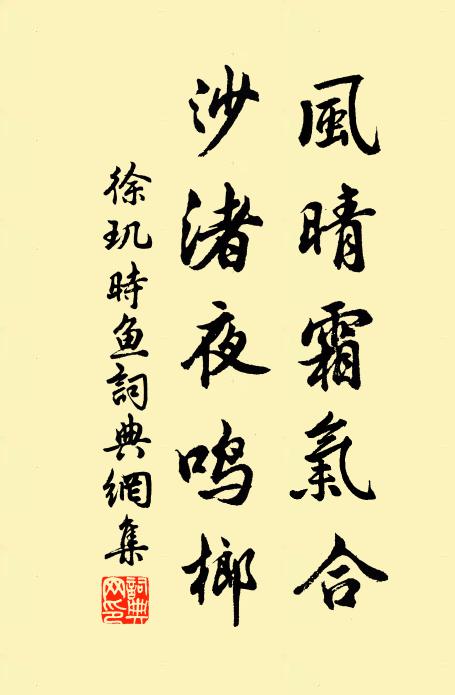 風晴霜氣合
沙渚夜鳴榔
徐玑時魚詞典網集
詞典網印